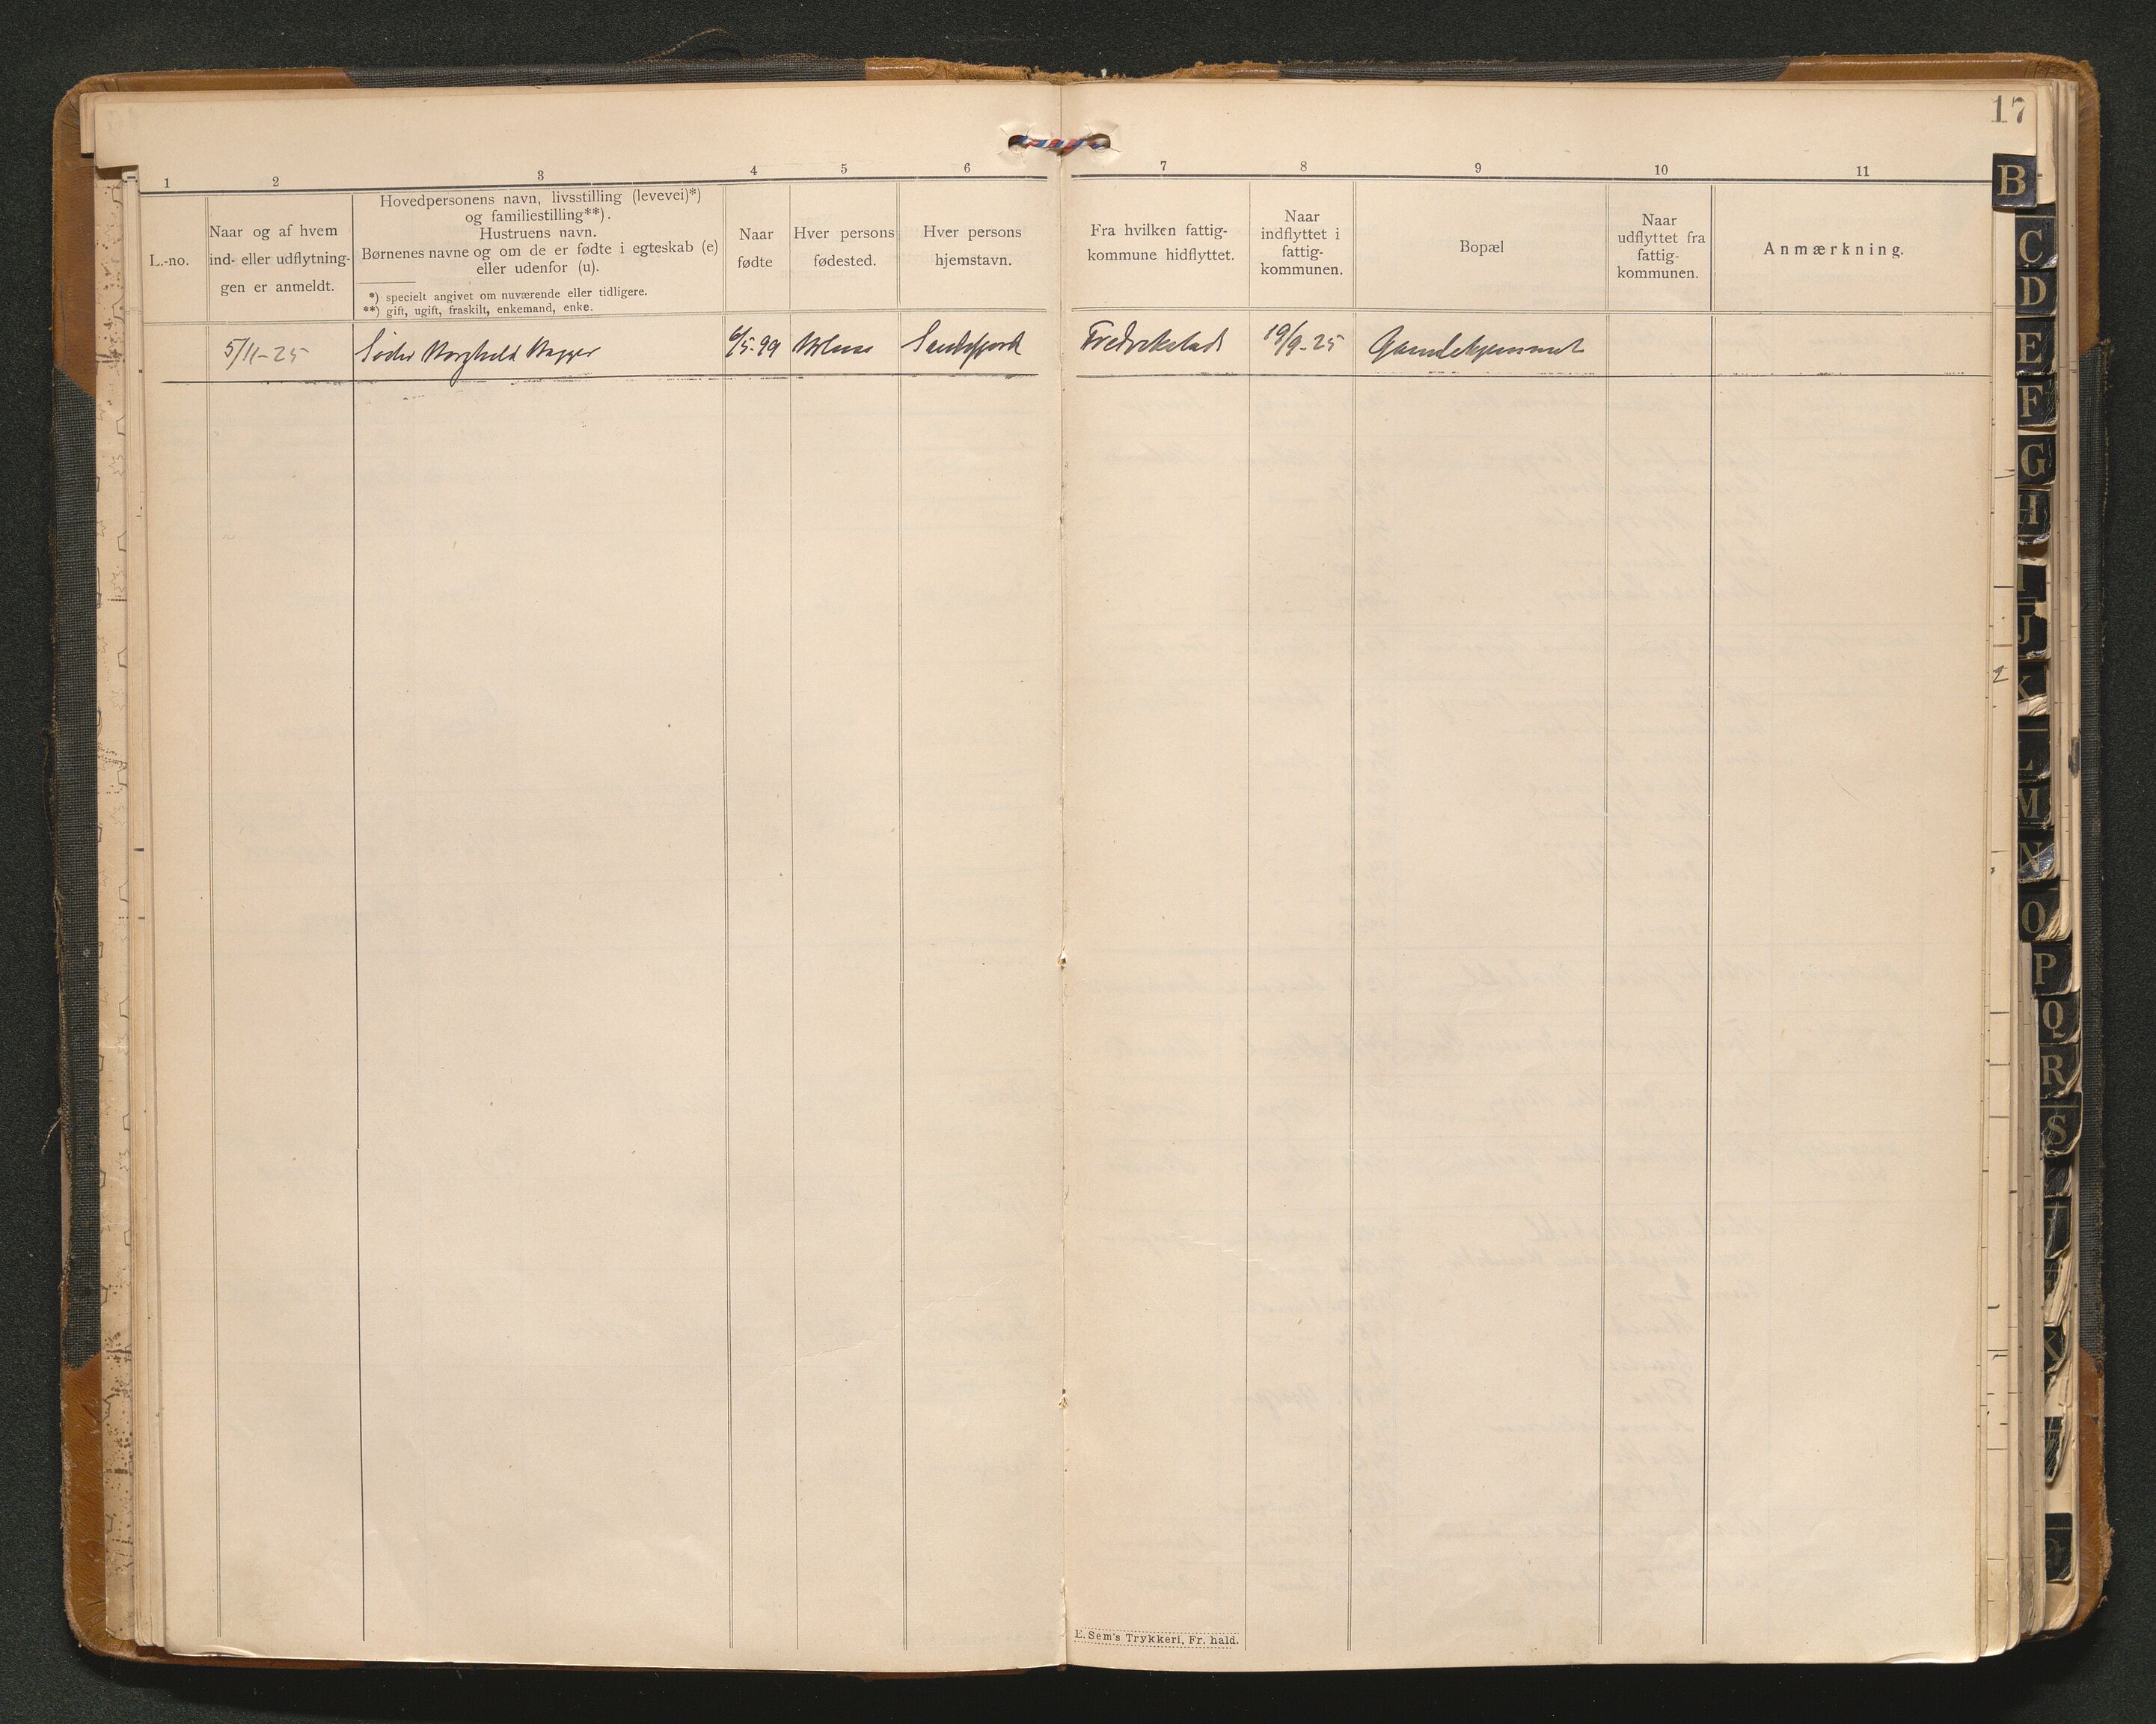 17
1 2 3 4 5 6 7 8 9 10 11
L.-no.
Naar og af hvem
ind- eller udflytnin-
gen er anmeldt.
Hovedpersonens navn, livsstilling (levevei)*)
og familiestilling**).
Hustruens navn.
Børnenes navne og om de er fødte i egteskab (e)
eller udenfor (u).
*) specielt angivet om nuværende eller tidligere.
**) gift, ugift, fraskilt, enkemand, enke.
Naar
fødte
Hver persons
fødested.
Hver persons
hjemstavn.
Fra hvilken fattig-
kommune hidflyttet.
Naar
indflyttet i
fattig-
kommunen.
Bopæl
Naar
udflyttet fra
fattig-
kommunen.
Anmærkning.
5/11-25 Borghild 6/5-99 Sandefjord Fredrikstad 19/9-25 Gamlehjemmet
E. Sem's Trykkeri, Fr. hald.
B
C
D
E
F
G
H
I
J
K
L
M
N
O
P
Q
R
S